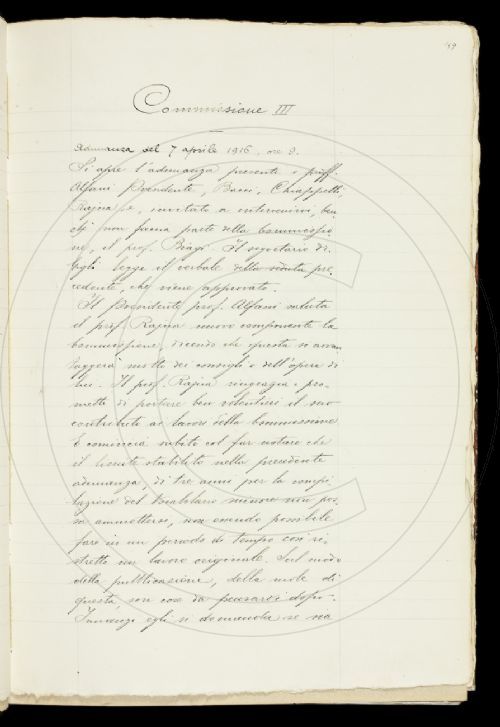 159
Commissione III
Adunanza del 7 aprile 1916, ore 9.
Si apre l'adunanza presenti i proff.
Alfani Presidente, Bacci, Chiappelli,
Rajna e, invitato a intervenirvi, ben
chè non faccia parte della Commissio
ne, il prof. Biagi. Il segretario
legge il verbale della seduta pre
cedente, che viene approvato.
Il Presidente prof. Alfani saluta
il prof. Rajna nuovo componente la
Commissione, dicendo che questa si avvan
taggerà molto dei consigli e dell'opera di
lui. Il prof. Rajna ringrazia e pro-
mette di portare ben volentieri il suo
contributo ai lavori della Commissione
e comincia subito col far notare che
il limite stabilito nella precedente
adunanza, di tre anni per la compi
lazione del Vocabolario minore non pos
sa ammettersi, non essendo possibile
fare in un periodo di tempo così ri-
stretto un lavoro originale. Sul modo
della pubblicazione, della mole di
questa, son cose da pensarci dopo.
Innanzi egli si domanda se sia